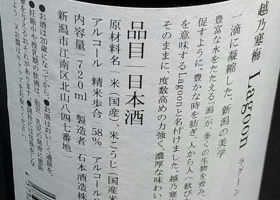 越乃寒梅 Lagoon ラグーン
一滴に凝縮した、新潟の美学
豊かな水をたたえる「潟」が、多くの生物を育み、
促すように、豊かな時を紡ぎ、人から人へ歓び
を意味するLagoonと名付けました。越乃寒
そのままに、度数高めの力強く、濃厚な味わい
品目 日本酒
原材料名 米(国産)、米こうじ(国産米
アルコール 精米歩合 58% アルコール
内容量 720ml 製造者 石本酒造株
新潟市江南区北山八四七番地
お酒は20歳になってから。お酒はおいしく適量を。
妊娠中や授乳期の飲酒は、